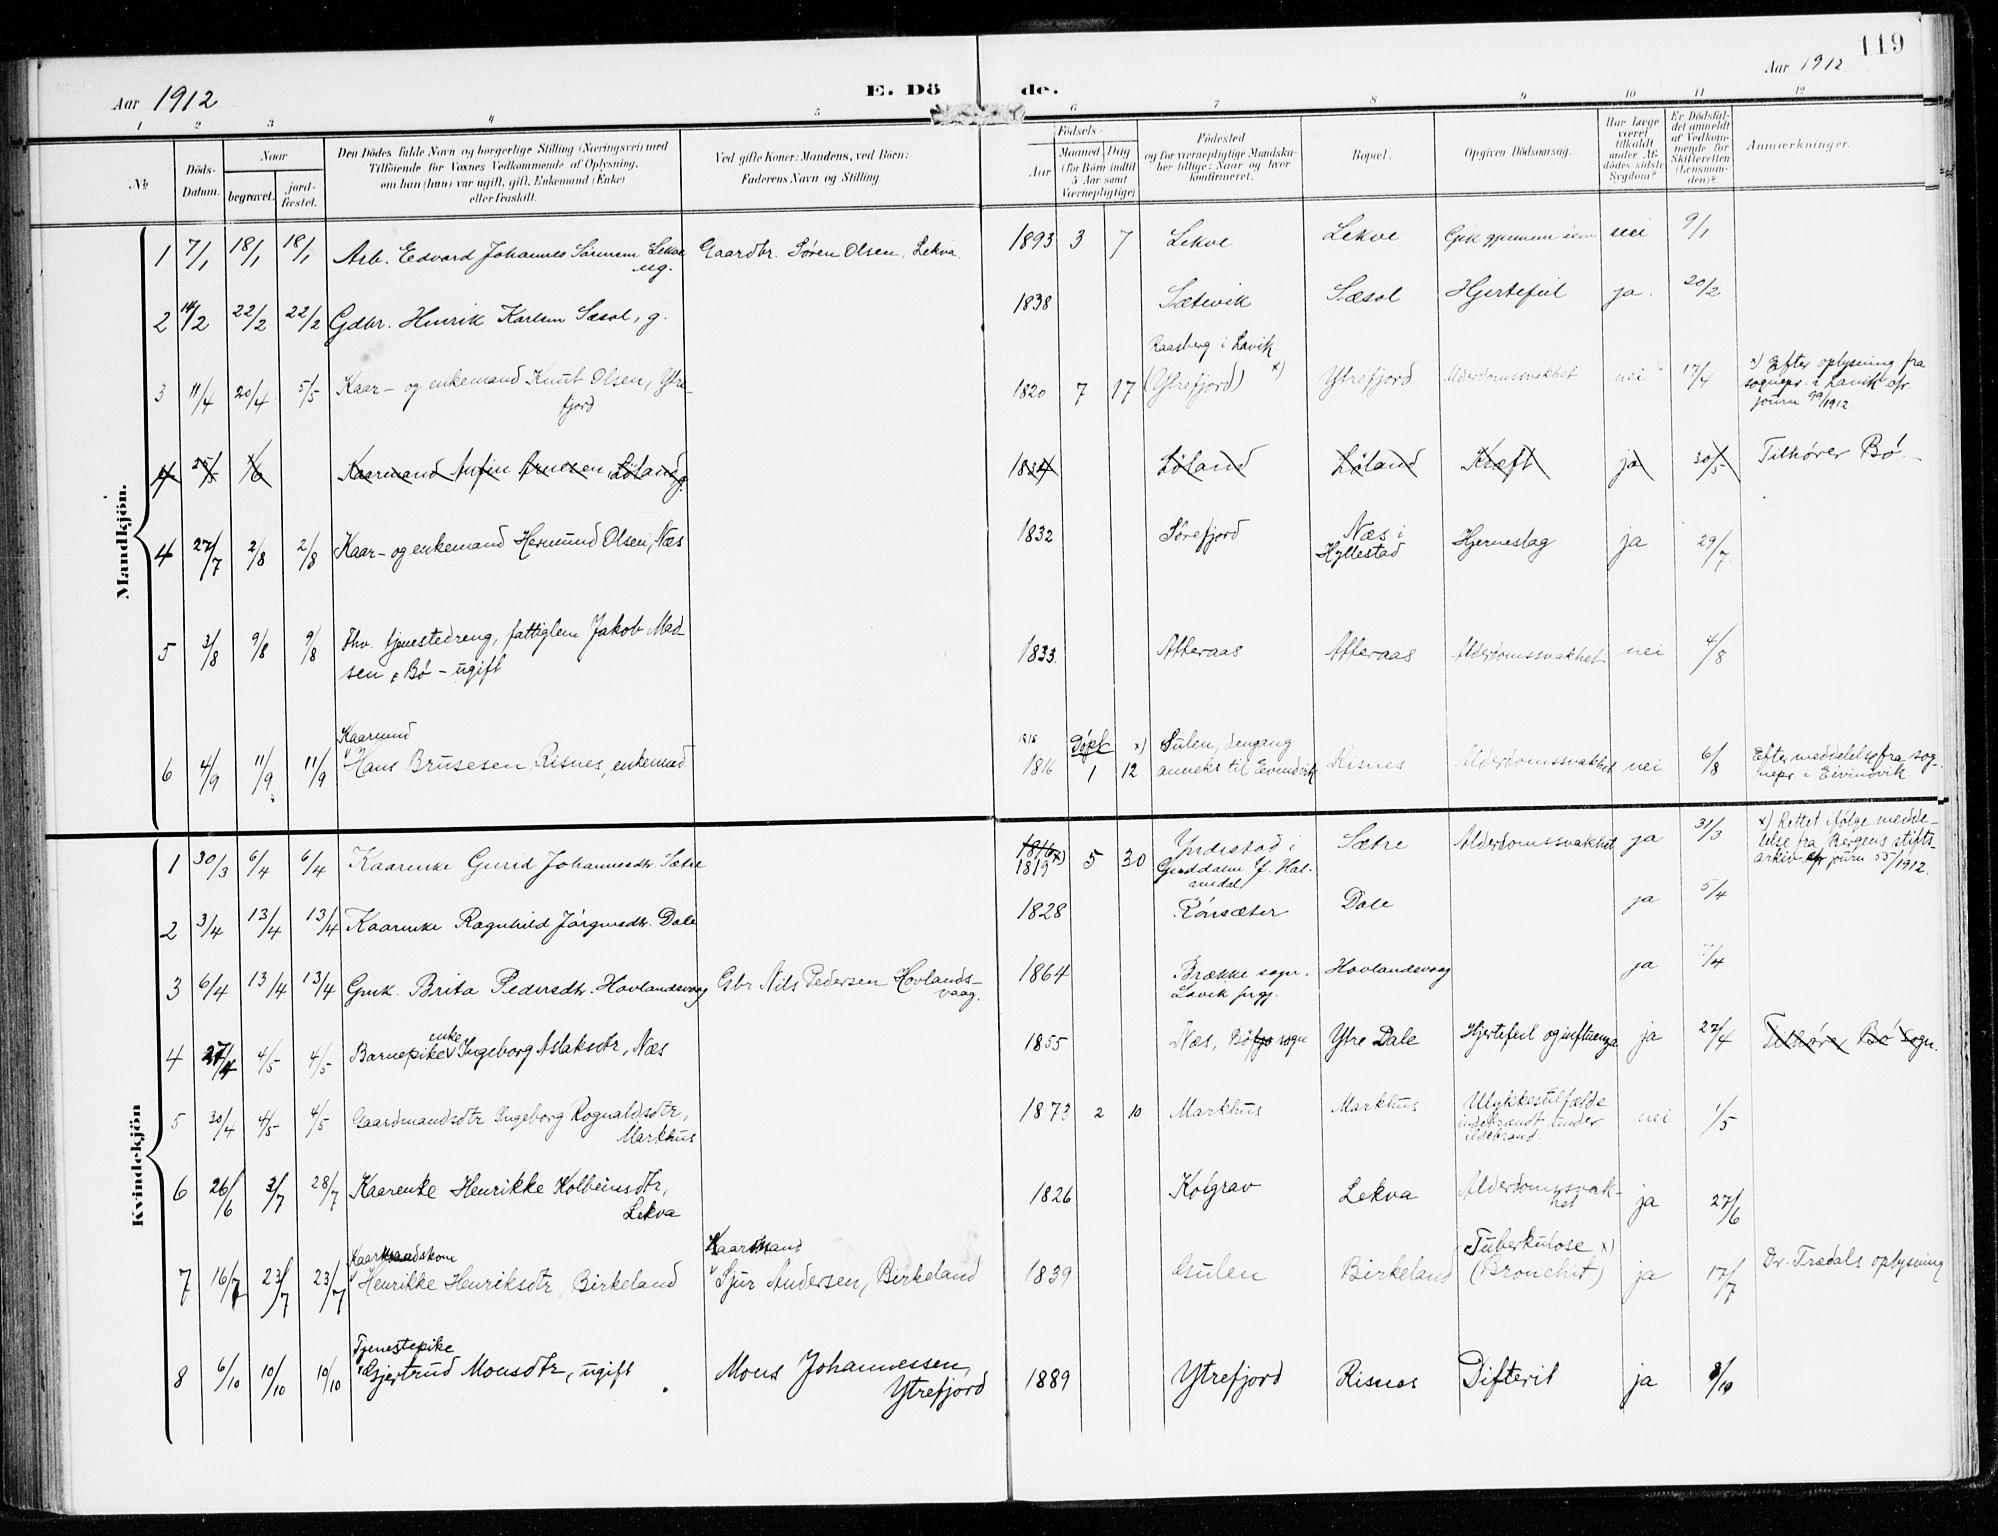 119
Aar 1912
E. Dö de.
Aar 1912
1 2 3 4 5 6 7 8 9 10 11 12
№
Döds-
Datum.
Naar
begravet.
jord-
fæstet.
Den Dödes fulde Navn og borgerlige Stilling (Næringsvei) med
Tilföiende for Voxnes Vedkommende af Oplysning,
om han (hun) var ugift, gift, Enkemand (Enke)
eller fraskilt.
Ved gifte Koner: Mandens, ved Börn:
Faderens Navn og Stilling.
Födsels-
Aar
Maaned. Dag
(for Börn indtil
5 Aar samt
Værnepligtige)
Födested
og for værnepligtige Mandska-
ber tillige: Naar og hvor
konfirmeret.
Bopæl.
Opgiven Dödsaarsag.
Har Læge
været
tilkaldt
under Af-
dödes sidste
Sygdom?
Er Dödsfal-
det anmeldt
af Vedkom-
mende for
Skifteretten
(Lensman-
den)?
Anmærkninger.
Mandkjön.
1 7/1 18/1 18/1 Arb. Edvard Johannes Sörensen Lekve Gaardbr. Søren Olsen, Lekva. 1893 3 7 Lekve Lekve Gik gjennem isen nei 9/1
ug.
2 14/2 22/2 22/2 Gdbr. Henrik Karlsen Sæsol, g. 1838 Sætevik Sæsol Hjertefeil ja. 20/2
Raasberg i Lavik
3 11/4 20/4 5/5 Kaar- og enkemand Knut Olsen, Ytre- 1820 7 17 (Ytrefjord) x) Ytrefjord Alderdomssvakhet nei 17/4 x) Efter oplysning fra
fjord
sognepr. i Lavik cfr
journ 99/1912.
4 25/5 1/6 Kaarmand Anfin Arnesen, Løland g. 1834 Løland Løland Kræft ja 30/5 Tilhører Bø.
4 27/7 2/8 2/8 Kaar- og enkemand Hermund Olsen, Næs 1832 Sørefjord Næs i
Hyllestad Hjerneslag ja 29/7
5 3/8 9/8 9/8 Fhv. tjenestedreng, fattiglem Jakob Mad-
sen, Bø - ugift 1833. Atteraas Atteraas Alderdomssvakhet nei 4/8
Kaarmand
6 4/9 11/9 11/9 Hans Brusesen, Risnes, enkemand 1815
1816 Døpt
1 12 x) Sulen, dengang
anneks til Evindvik Risnes Alderdomssvakhet nei 6/8 Efter meddelelse fra sog-
nepr i Eivindvik
Kvindekjön
1 30/3 6/4 6/4 Kaarenke Gurid Johannesdtr. Sætre 1816 x)
1819 5 30 Yndestad i
Guddalen Yf. Hol-
medal Sætre Alderdomssvakhet ja 31/3 x) Rettet ifølge medde-
lelse fra Bergens stifts-
arkiv cfr journ. 55/1912.
2 3/4 13/4 13/4 Kaarenke Ragnhild Jörgensdtr. Dale 1828 Rönsæter Dale ja 5/4
3 6/4 13/4 13/4 Gmk. Brita Pedersdtr. Hovlandsvaag Gbr Nils Pedersen Hovlands-
vaag. 1864 Brække sogn.
Lavik prgj. Hovlandsvaag ja 7/4
enke
4 27/4 4/5 4/5 Barnepike Ingeborg Aslaksdtr, Næs 1855 Næs, Bø sogn Ytre Dale Hjertefeil og influenza ja 27/4 Tilhører Bø sogn.
5 30/4 4/5 4/5 Gaardmandsdtr Ingeborg Rognaldsdtr,
Markhus 1873 2 10 Markhus Markhus Ulykkestilfælde
indebrændt under
ildebrand. nei 1/5
6 26/6 3/7 28/7 Kaarenke Henrikke Kolbeinsdtr,
Lekva 1826 Kolgrav Lekva Alderdomssvak-
het ja 27/6
Kaarmandskone Kaarmand
7 16/7 23/7 23/7 Henrikke Henriksdtr, Birkeland Sjur Andersen, Birkeland 1839 Gulen Birkeland Tuberkulose x)
(Bronchit) ja 17/7 Dr. Trædals oplysning
Tjenestepike
8 6/10 10/10 10/10 Gjertrud Monsdtr, ugift Mons Johannessen,
Ytrefjord 1889 Ytrefjord Risnes Difterit ja 8/10